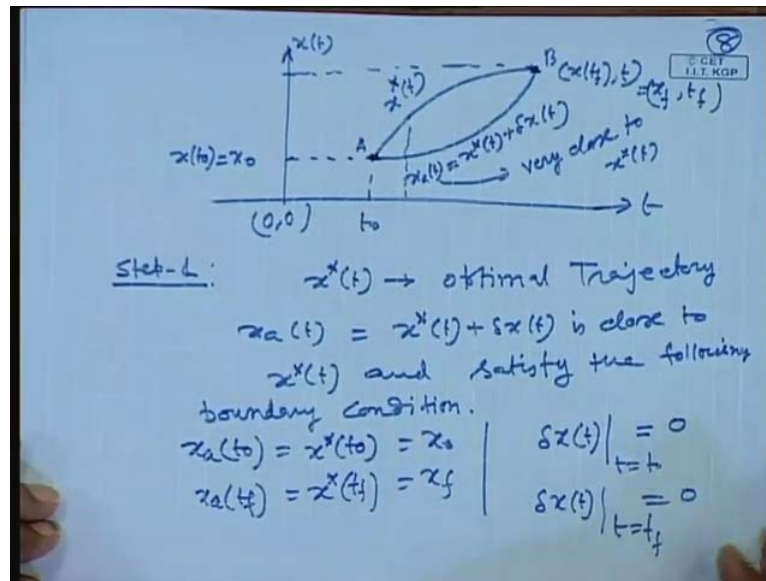 8
© CET
I.I.T. KGP
x(t)
B (x(t_f), t) = (x_f, t_f)
x*(t)
x(t_0) = x_0
A
x_a(t) = x*(t) + δx(t) → very close to x*(t)
(0,0)
t_0
t
Step-1:
x*(t) → optimal Trajectory
x_a(t) = x*(t) + δx(t) is close to
x*(t) and satisfy the following
boundary condition.
x_a(t_0) = x*(t_0) = x_0 | δx(t)|_{t=t_0} = 0
x_a(t_f) = x*(t_f) = x_f | δx(t)|_{t=t_f} = 0